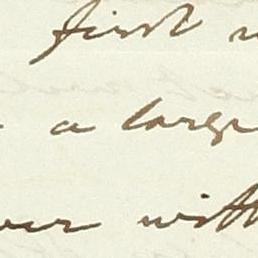 first
a large
with